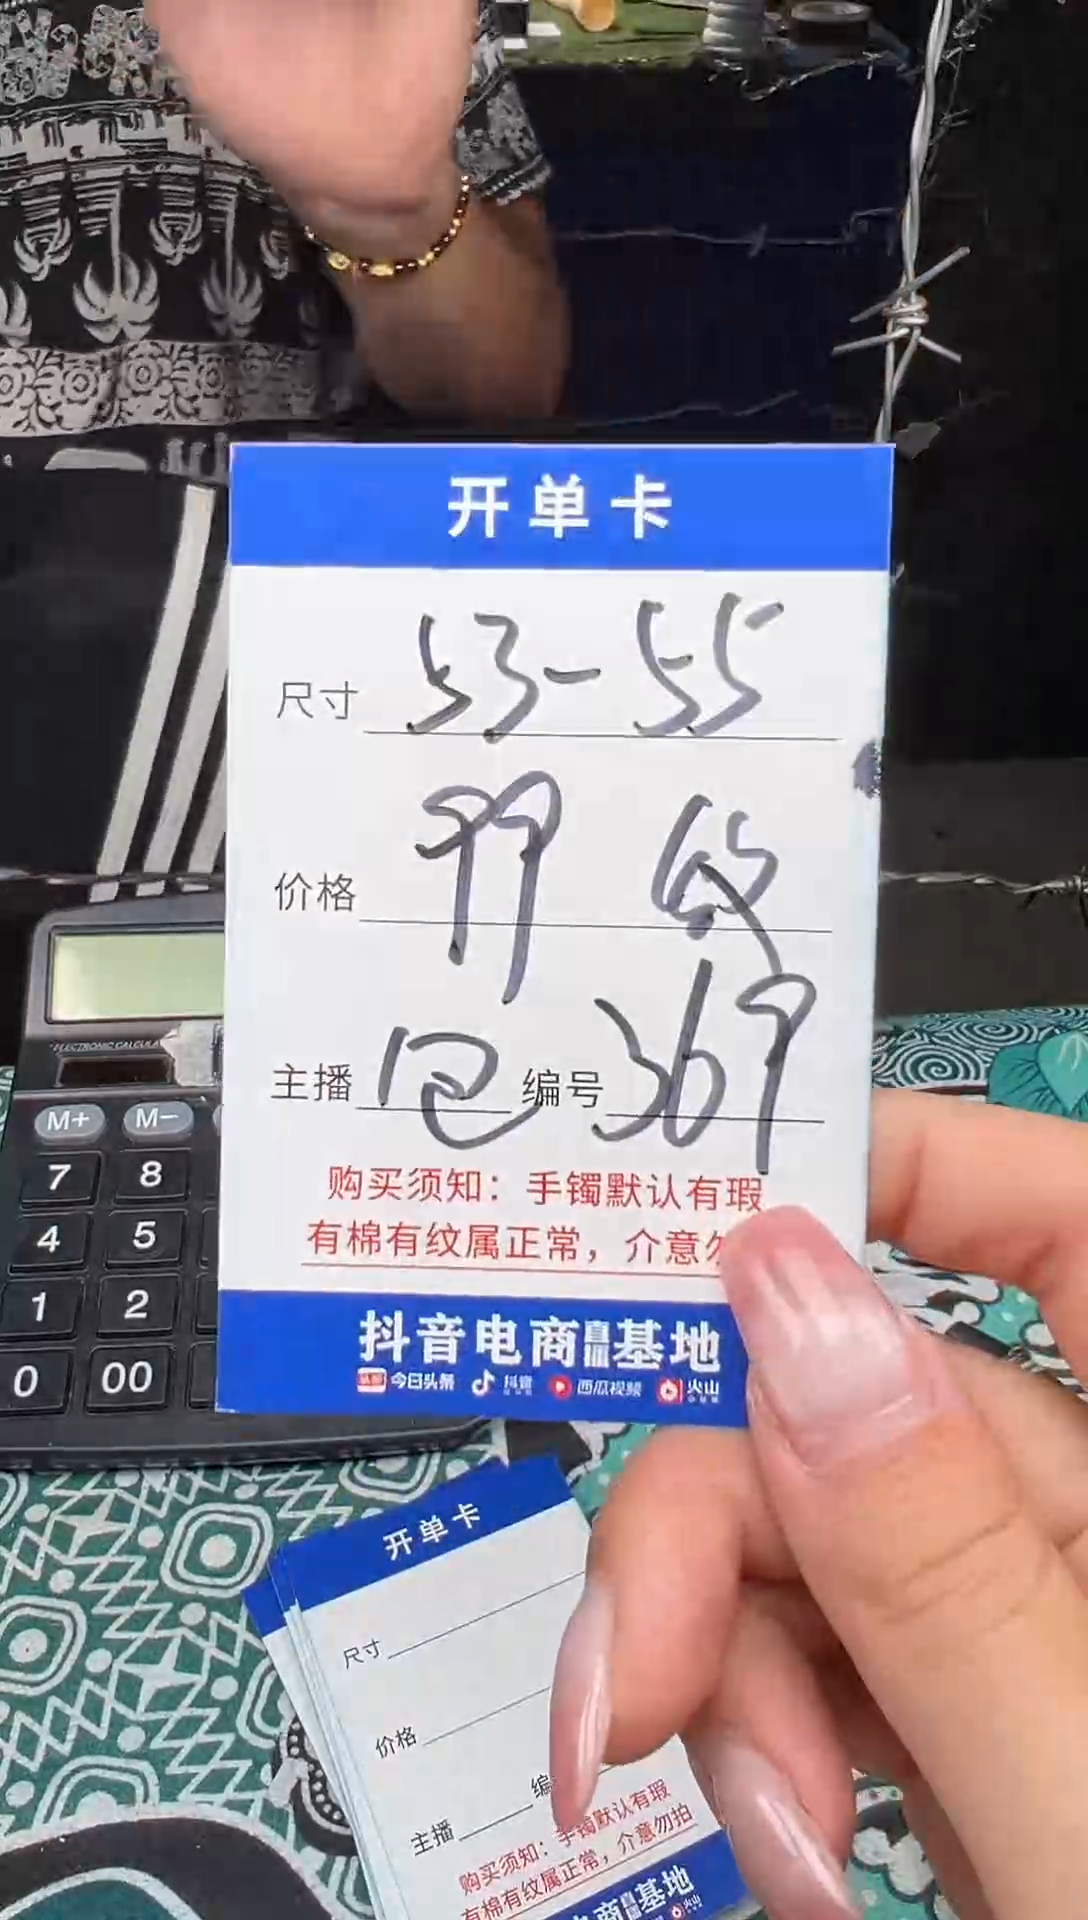 开单卡
尺寸 53-55
价格 99
主播 编号 369
购买须知：手镯默认有瑕
有棉有纹属正常，介意勿
抖音电商直播基地
头条 今日头条 抖音 西瓜视频 火山
ELECTRONIC CALCULA
M+ M-
7 8
4 5
1 2
0 00
开单卡
尺寸
价格
主播 编
购买须知：手镯默认有瑕
有棉有纹属正常，介意勿拍
电商直播基地
火山